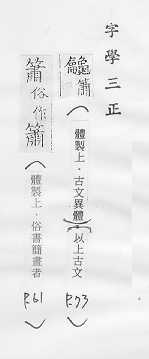 字學三正
龥簫（體製上．古文異體）（以上古文 P.73）
簫俗作簫（體製上．俗書簡畫者 P.61）